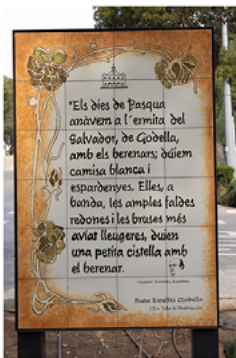 "Els dies de Pasqua
anàvem a l'ermita del
Salvador, de Godella,
amb els berenars; dúiem
camisa blanca i
espardenyes. Elles, a
banda, les amples faldes
redones i les bruses més
aviat lleugeres, duien
una petita cistella amb
el berenar.